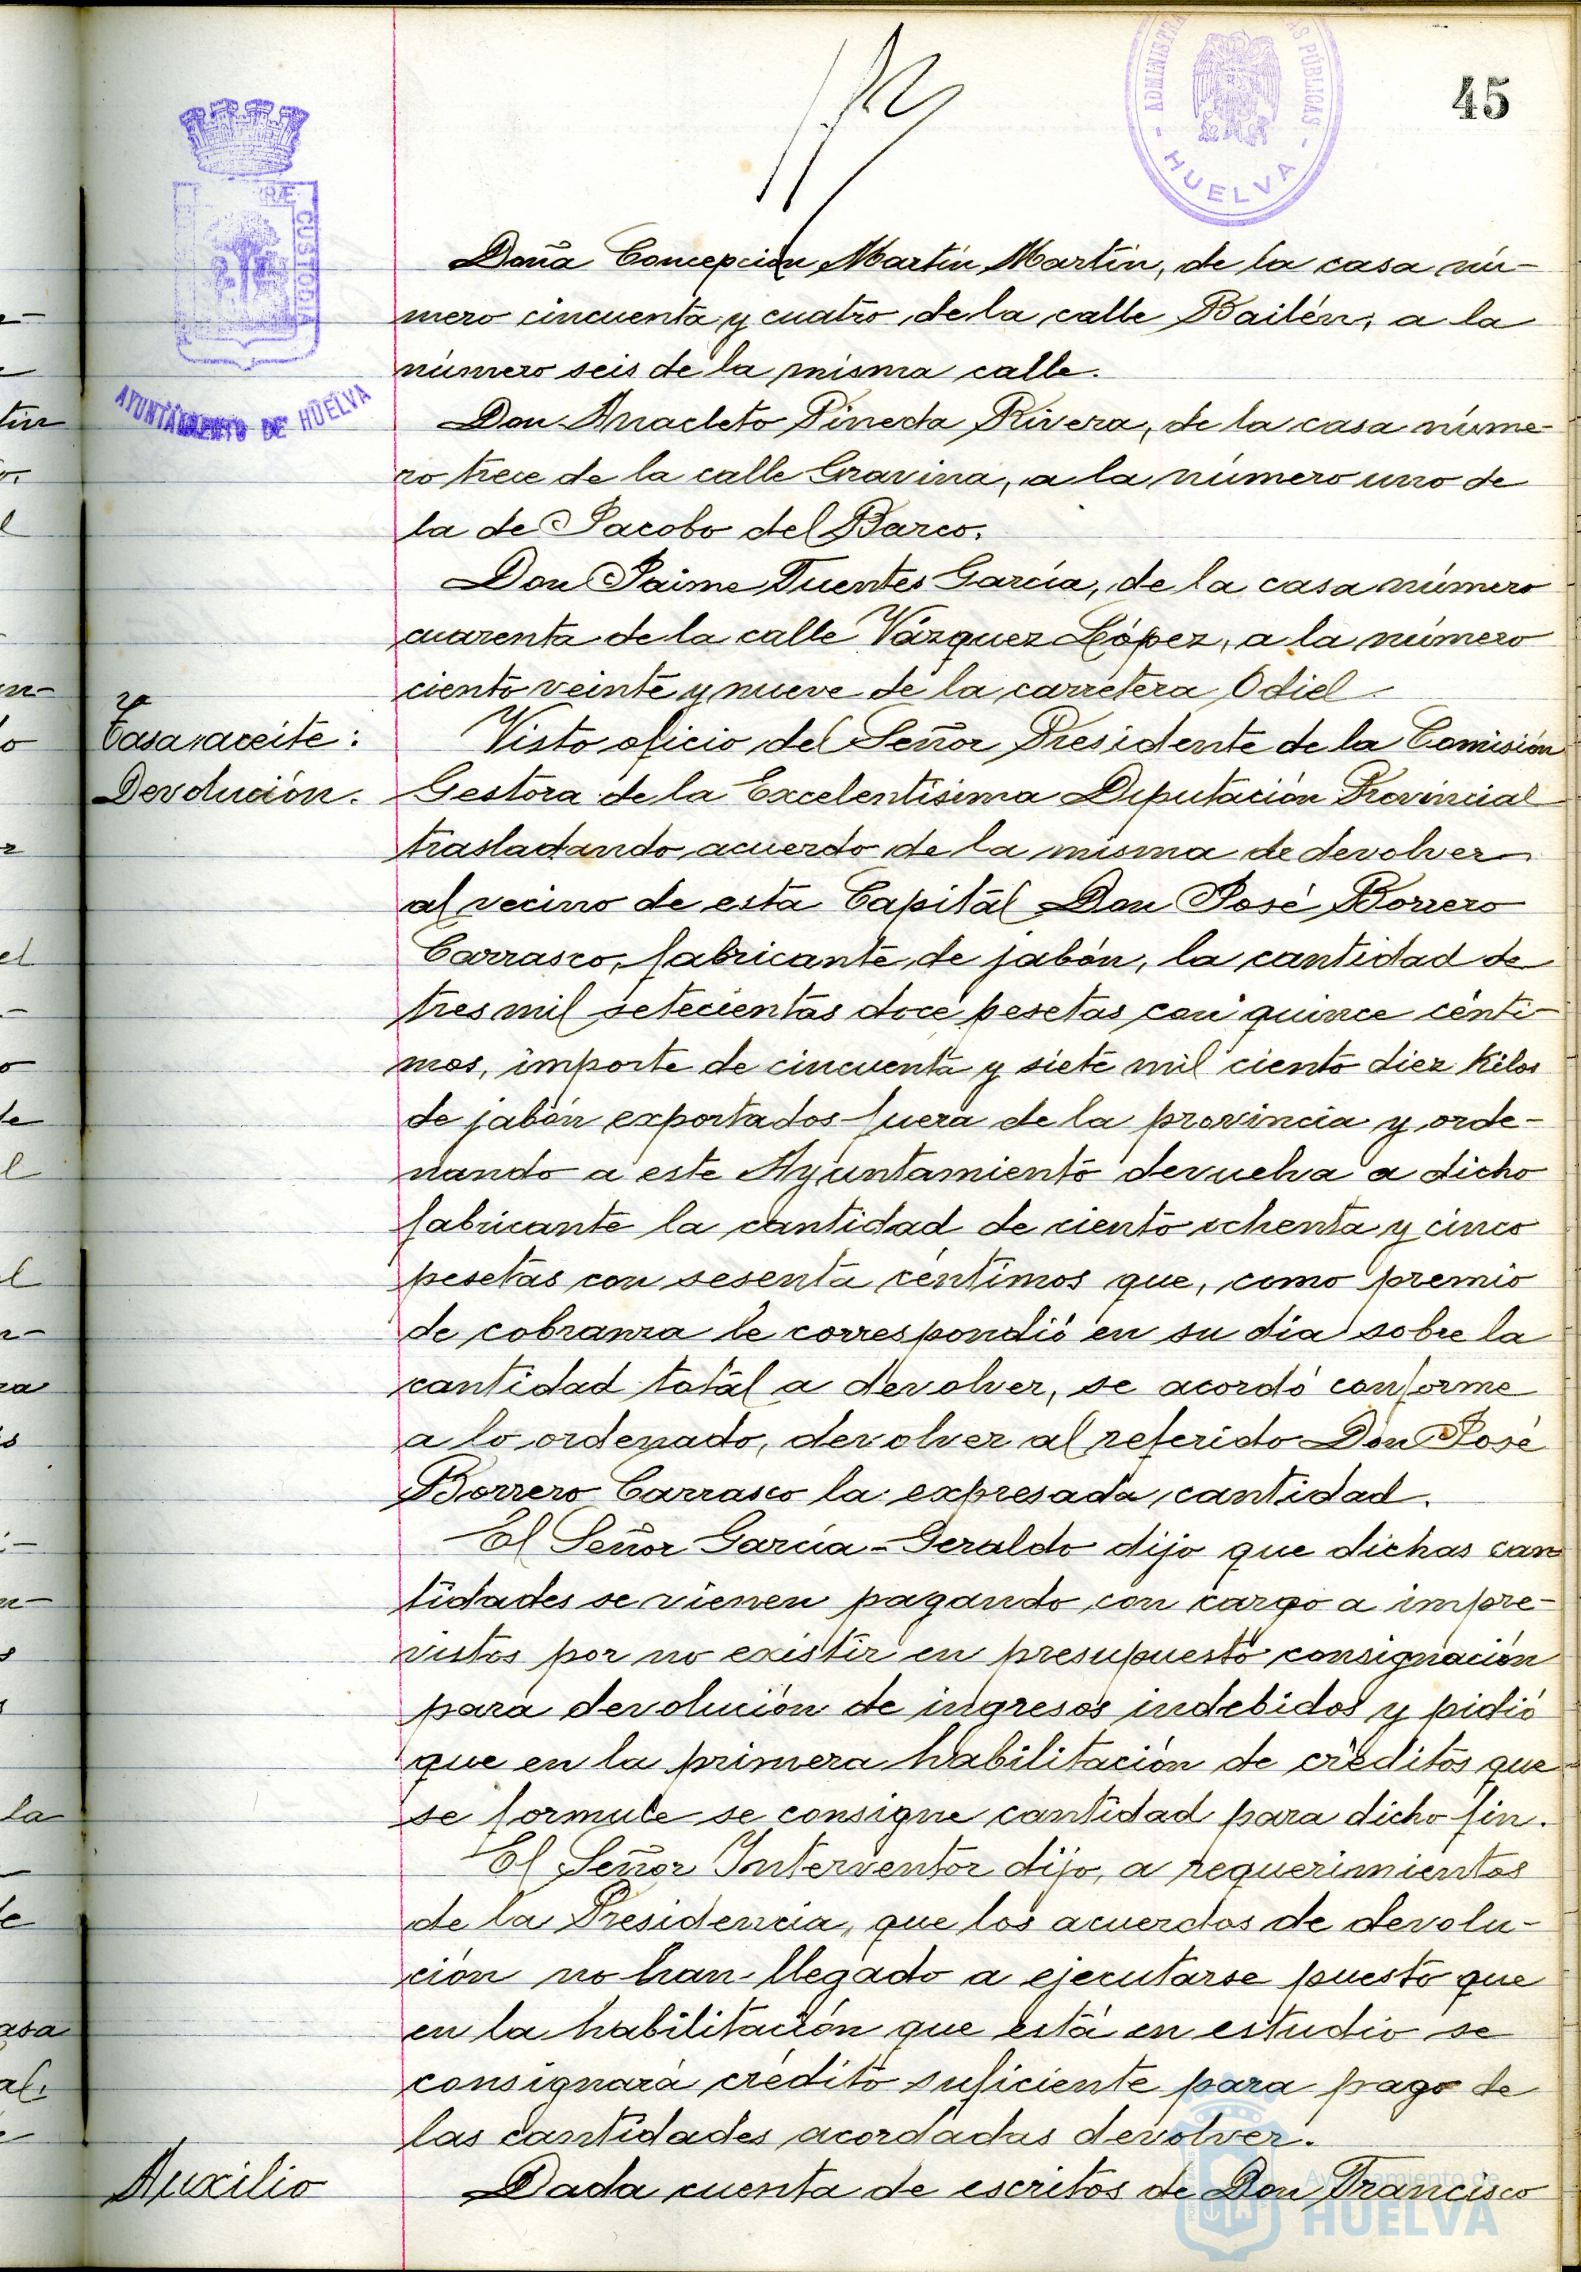 45
ADMINISTRA
AS PÚBLICAS
- HUELVA -
RÆ CUSTODIA
AYUNTAMIENTO DE HUELVA
Doña Concepción Martín Martín, de la casa nú-
mero cincuenta y cuatro de la calle Bailén, a la
número seis de la misma calle.
Don Anacleto Pineda Rivera, de la casa núme-
ro trece de la calle Gravina, a la número uno de
la de Jacobo del Barco.
Don Jaime Fuentes García, de la casa número
cuarenta de la calle Vázquez López, a la número
ciento veinte y nueve de la carretera Odiel.
Tasa aceite:
Devolución.
Visto oficio del Señor Presidente de la Comisión
Gestora de la Excelentísima Diputación Provincial
trasladando acuerdo de la misma de devolver
al vecino de esta Capital Don José Borrero
Carrasco, fabricante de jabón, la cantidad de
tres mil setecientas doce pesetas con quince cénti-
mos, importe de cincuenta y siete mil ciento diez kilos
de jabón exportados fuera de la provincia y orde-
nando a este Ayuntamiento devuelva a dicho
fabricante la cantidad de ciento ochenta y cinco
pesetas con sesenta céntimos que, como premio
de cobranza le correspondió en su dia sobre la
cantidad total a devolver, se acordó conforme
a lo ordenado, devolver al referido Don José
Borrero Carrasco la expresada cantidad.
El Señor García-Geraldo dijo que dichas can
tidades se vienen pagando con cargo a impre-
vistos por no existir en presupuesto consignación
para devolución de ingresos indebidos y pidió
que en la primera habilitación de créditos que
se formule se consigne cantidad para dicho fin.
El Señor Interventor dijo, a requerimientos
de la Presidencia, que los acuerdos de devolu-
ción no han llegado a ejecutarse puesto que
en la habilitación que está en estudio se
consignará crédito suficiente para pago de
las cantidades acordadas devolver.
Auxilio
Dada cuenta de escritos de Don Francisco
Ayuntamiento de
HUELVA